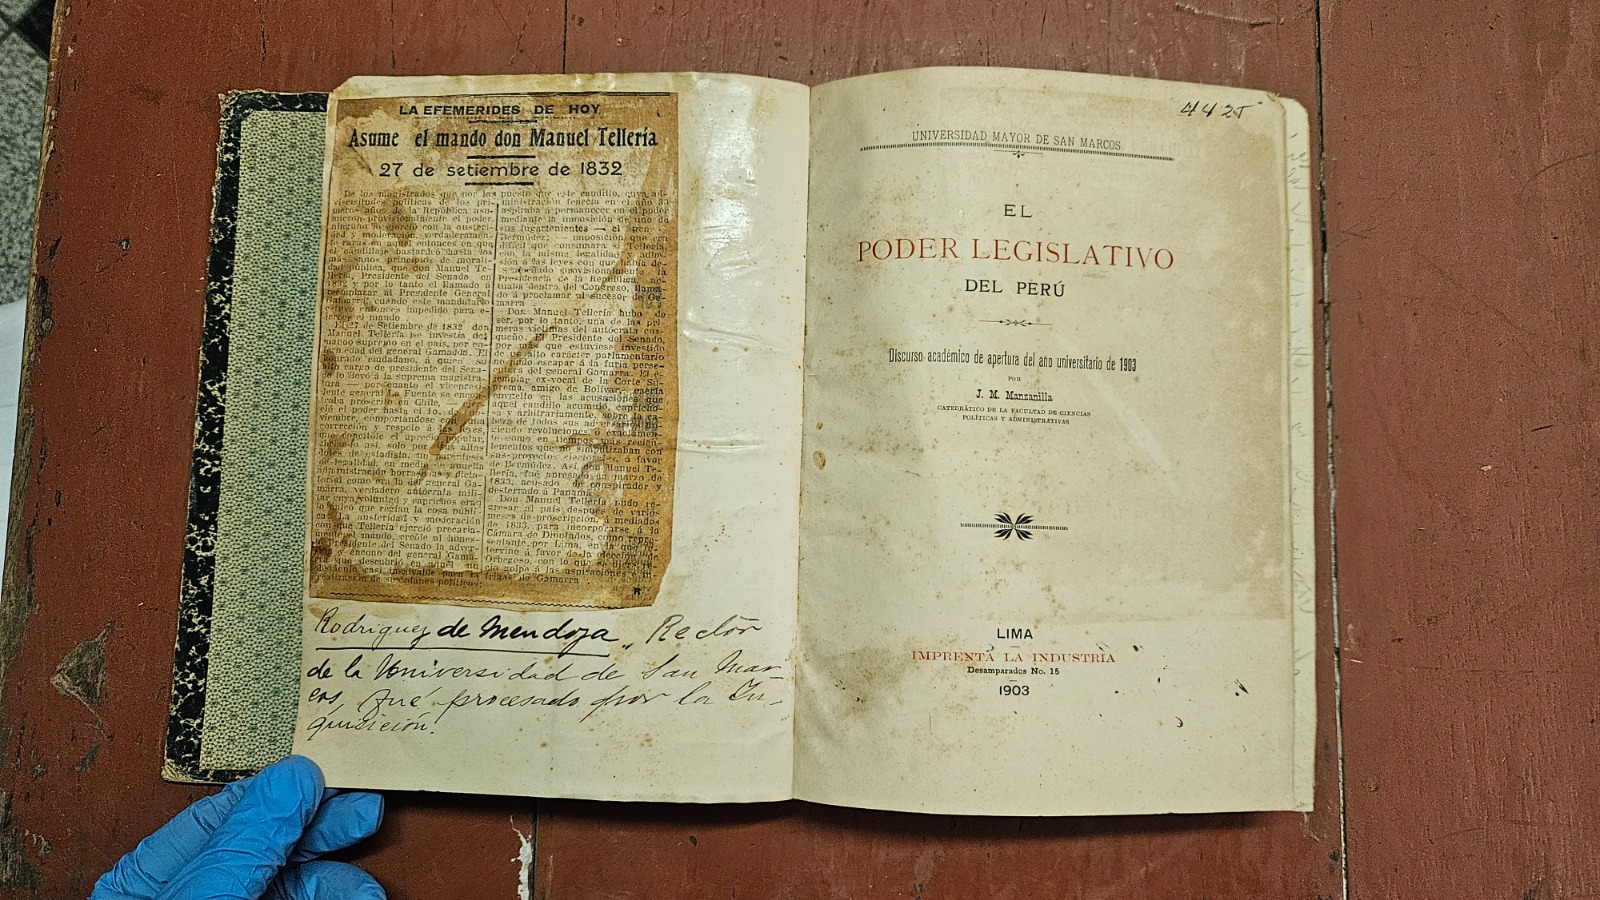 LA EFEMERIDES DE HOY
Asume el mando don Manuel Tellería
27 de setiembre de 1832
De los magistrados que por las
vicesitudes políticas de los pri-
meros años de la República asu-
mieron provisionalmente el poder,
ninguno lo ejerció con la austeri-
dad y moderación, verdaderamen-
te raras en aquel entonces en que
el caudillaje bastardeó hasta los
más sanos principios de morali-
dad pública, que don Manuel Te-
llería, Presidente del Senado en
1832 y por lo tanto el llamado á
reemplazar al Presidente General
Gamarra, cuando este mandatario
estuvo entonces impedido para e-
jercer el mando.
El 27 de Setiembre de 1832 don
Manuel Tellería se invistió del
mando supremo en el país, por en-
fermedad del general Gamarra. El
honrado ciudadano, á quien su
alto cargo de presidente del Sena-
do lo llevó á la suprema magistra-
tura — por cuanto el vicepresi-
dente general La Fuente se encon-
traba proscrito en Chile, — ejer-
ció el poder hasta el 1o. de no-
viembre, comportándose con una
corrección y respeto á las leyes,
que
administración borrascosa y dicta-
torial como era la del general Ga-
marra, verdadero autócrata mili-
tar cuya voluntad y caprichos eran
lo único que regían la cosa públi-
ca. La austeridad y moderación
con que Tellería ejerció precaria-
mente el mando,
Presidente del Senado la adver-
sión y encono del general Gama-
rra que descubrió en aquel un
obstáculo casi insalvable para la
realización de sus planes políticos:
puesto que este caudillo, cuya ad-
ministración fenecía en el año 33
aspiraba á permanecer en el poder
mediante la imposición de uno de
sus lugartenientes — el gene-
Bermúdez, — imposición que era
difícil que consumara si Tellería,
con la misma legalidad y adhe-
sión á las leyes con que había de-
sempeñado provisionalmente la
Presidencia de la República, ac-
tuaba dentro del Congreso, llama-
do á proclamar al sucesor de Ga-
marra.
Don Manuel Tellería hubo de
ser, por lo tanto, una de las pri-
meras víctimas del autócrata cuz-
queño. El Presidente del Senado,
por más que estuviese investido
de su alto carácter parlamentario
no pudo escapar á la furia perse-
guidora del general Gamarra. El e-
jemplar ex-vocal de la Corte Su-
prema, amigo de Bolívar,
envuelto en las acusaciones que
aquel caudillo acumuló, capricho-
sa y arbitrariamente, sobre la ca-
beza de todos sus adversarios
diendo revoluciones
te como en tiempos más recien-
elementos que no simpatizaban con
sus proyectos á favor
de Bermúdez. Así, don Manuel Te-
llería, fué apresado en marzo de
1833, acusado de conspirador y
desterrado á Panamá.
Don Manuel Tellería pudo re-
gresar al país después de varios
meses de proscripción, á mediados
de 1833, para incorporarse á la
Cámara de Diputados, como repre-
sentante por Lima, en la que
tervino á favor de la elección de
Orbegoso, con lo que
golpe á las aspiraciones
de Gamarra.
R
Rodríguez de Mendoza, Rector
de la Universidad de San Mar-
cos fué procesado por la In-
quisición.
4425
UNIVERSIDAD MAYOR DE SAN MARCOS
EL
PODER LEGISLATIVO
DEL PERÚ
Discurso académico de apertura del año universitario de 1903
POR
J. M. Manzanilla
CATEDRÁTICO DE LA FACULTAD DE CIENCIAS
POLÍTICAS Y ADMINISTRATIVAS
LIMA
IMPRENTA LA INDUSTRIA
Desamparados No. 15
1903